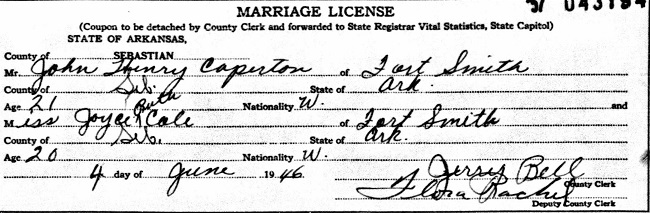 MARRIAGE LICENSE
(Coupon to be detached by County Clerk and forwarded to State Registrar Vital Statistics, State Capitol)
STATE OF ARKANSAS,
County of SEBASTIAN
Mr. John Henry Caperton of Fort Smith
County of Seb. State of Ark.
Age 21 Nationality W. and
Miss Joyce Ruth Cole of Fort Smith
County of Seb. State of Ark.
Age 20 Nationality W.
4 day of June 1946 Jersey Bell
County Clerk
Flora Rachel
Deputy County Clerk